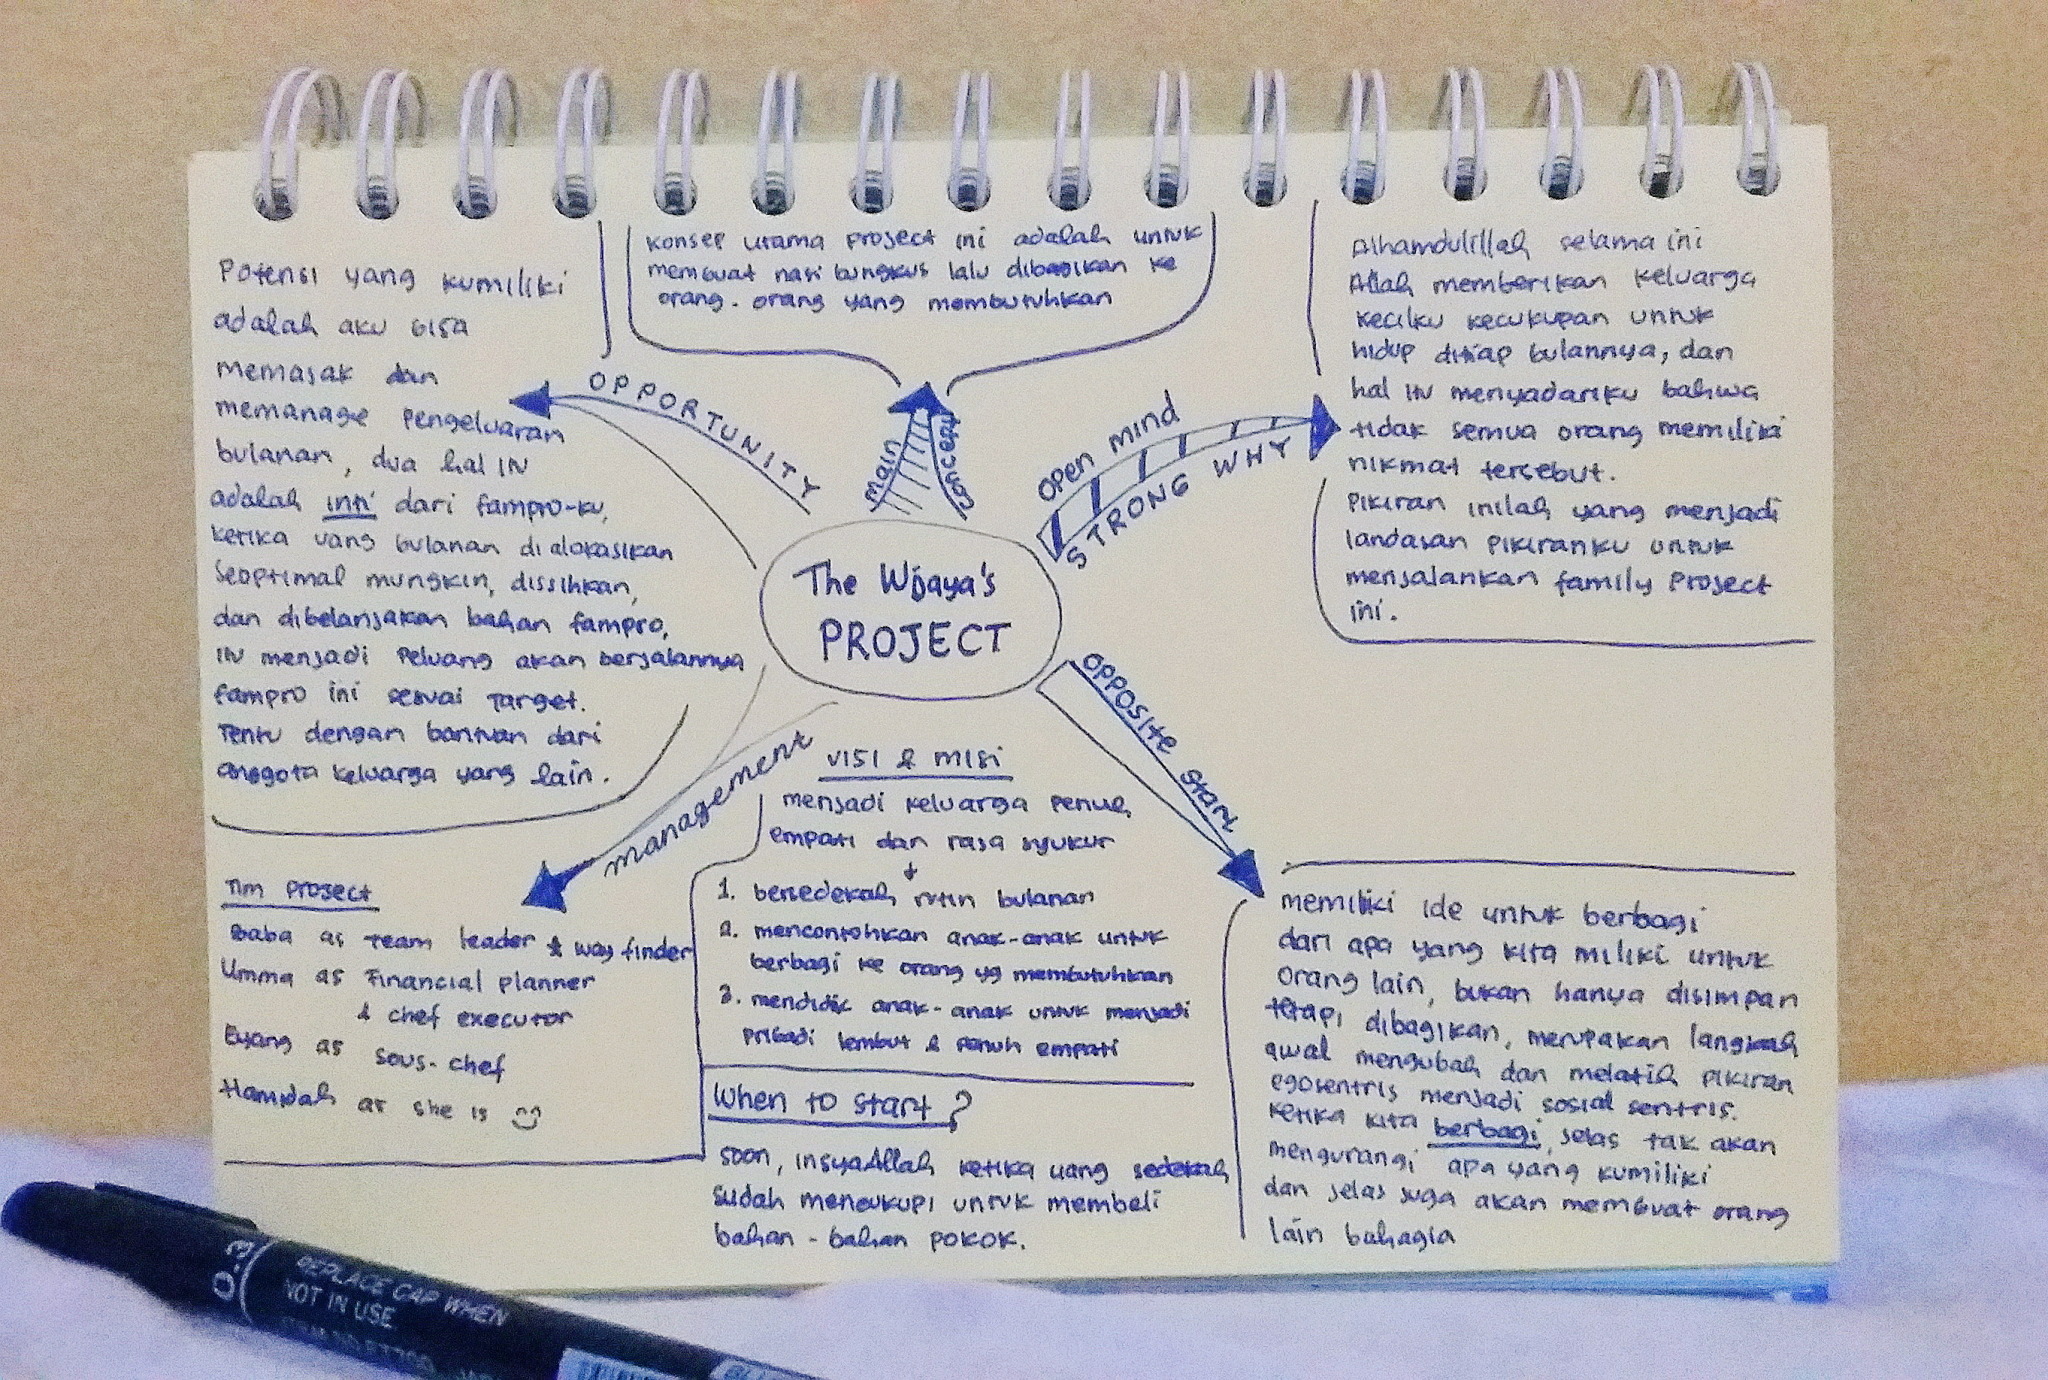 Potensi yang kumiliki
adalah aku bisa
memasak dan
memanage pengeluaran
bulanan, dua hal ini
adalah inti dari fampro-ku,
ketika uang bulanan dialokasikan
seoptimal mungkin, disisihkan,
dan dibelanjakan bahan fampro,
ini menjadi peluang akan berjalannya
fampro ini sesuai target.
Tentu dengan bantuan dari
anggota keluarga yang lain.
OPPORTUNITY
Konsep utama project ini adalah untuk
membuat nasi bungkus lalu dibagikan ke
orang-orang yang membutuhkan
main concept
Alhamdulillah selama ini
Allah memberikan keluarga
kecilku kecukupan untuk
hidup ditiap bulannya, dan
hal ini menyadariku bahwa
tidak semua orang memiliki
nikmat tersebut.
Pikiran inilah yang menjadi
landasan pikiranku untuk
menjalankan family project
ini.
OPEN MIND
STRONG WHY
The Wijaya's
PROJECT
OPPOSITE START
management
Tim project
Baba as team leader & way finder
Umma as Financial planner
& chef executor
Eyang as sous-chef
Hamidah as she is
visi & misi
menjadi keluarga penuh
empati dan rasa syukur
1. bersedekah rutin bulanan
2. mencontohkan anak-anak untuk
berbagi ke orang yg membutuhkan
3. mendidik anak-anak untuk menjadi
pribadi lembut & penuh empati
When to start?
soon, insyaAllah ketika uang sedekah
sudah mencukupi untuk membeli
bahan-bahan pokok.
memiliki ide untuk berbagi
dari apa yang kita miliki untuk
orang lain, bukan hanya disimpan
tetapi dibagikan, merupakan langkah
awal mengubah dan melatih pikiran
egosentris menjadi sosial sentris.
ketika kita berbagi, jelas tak akan
mengurangi apa yang kumiliki
dan jelas juga akan membuat orang
lain bahagia
0.3
REPLACE CAP WHEN
NOT IN USE